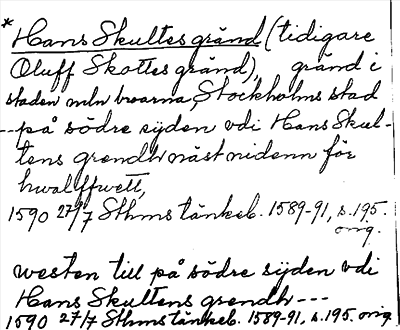 * Hans Skultes gränd (tidigare
Oluff Skottes gränd), gränd i
staden mln broarna, Stockholms stad
--på södre sijden vdi Hans Skul-
tens grendh näst nidenn för
hwalffwett,
1590 27/7 Sthms tänkeb. 1589-91, s. 195.
orig.
westen till på södre sijden vdi
Hans Skultens grendh ---
1590 27/7 Sthms tänkeb. 1589-91, s. 195. orig.